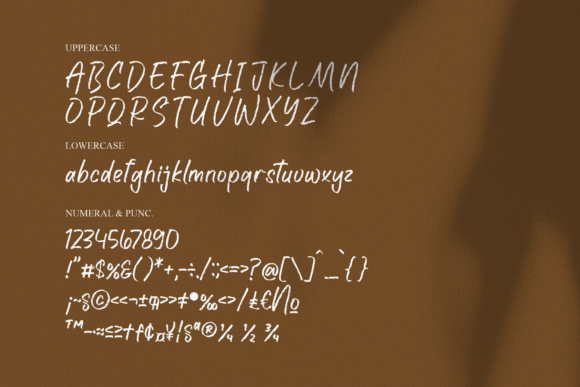 UPPERCASE
ABCDEFGHIJKLMN
OPQRSTUVWXYZ
LOWERCASE
abcdefghijklmnopqrstuvwxyz
NUMERAL & PUNC.
1234567890
!"#$%&()*+,-÷./:;<=>?@[\]^_`{}
¡~§©<<¬±ª>>≠•‰<>/₤€№
™–·≈≤≥†ƒ¢¤¥¦§ª®¼ ½ ¾